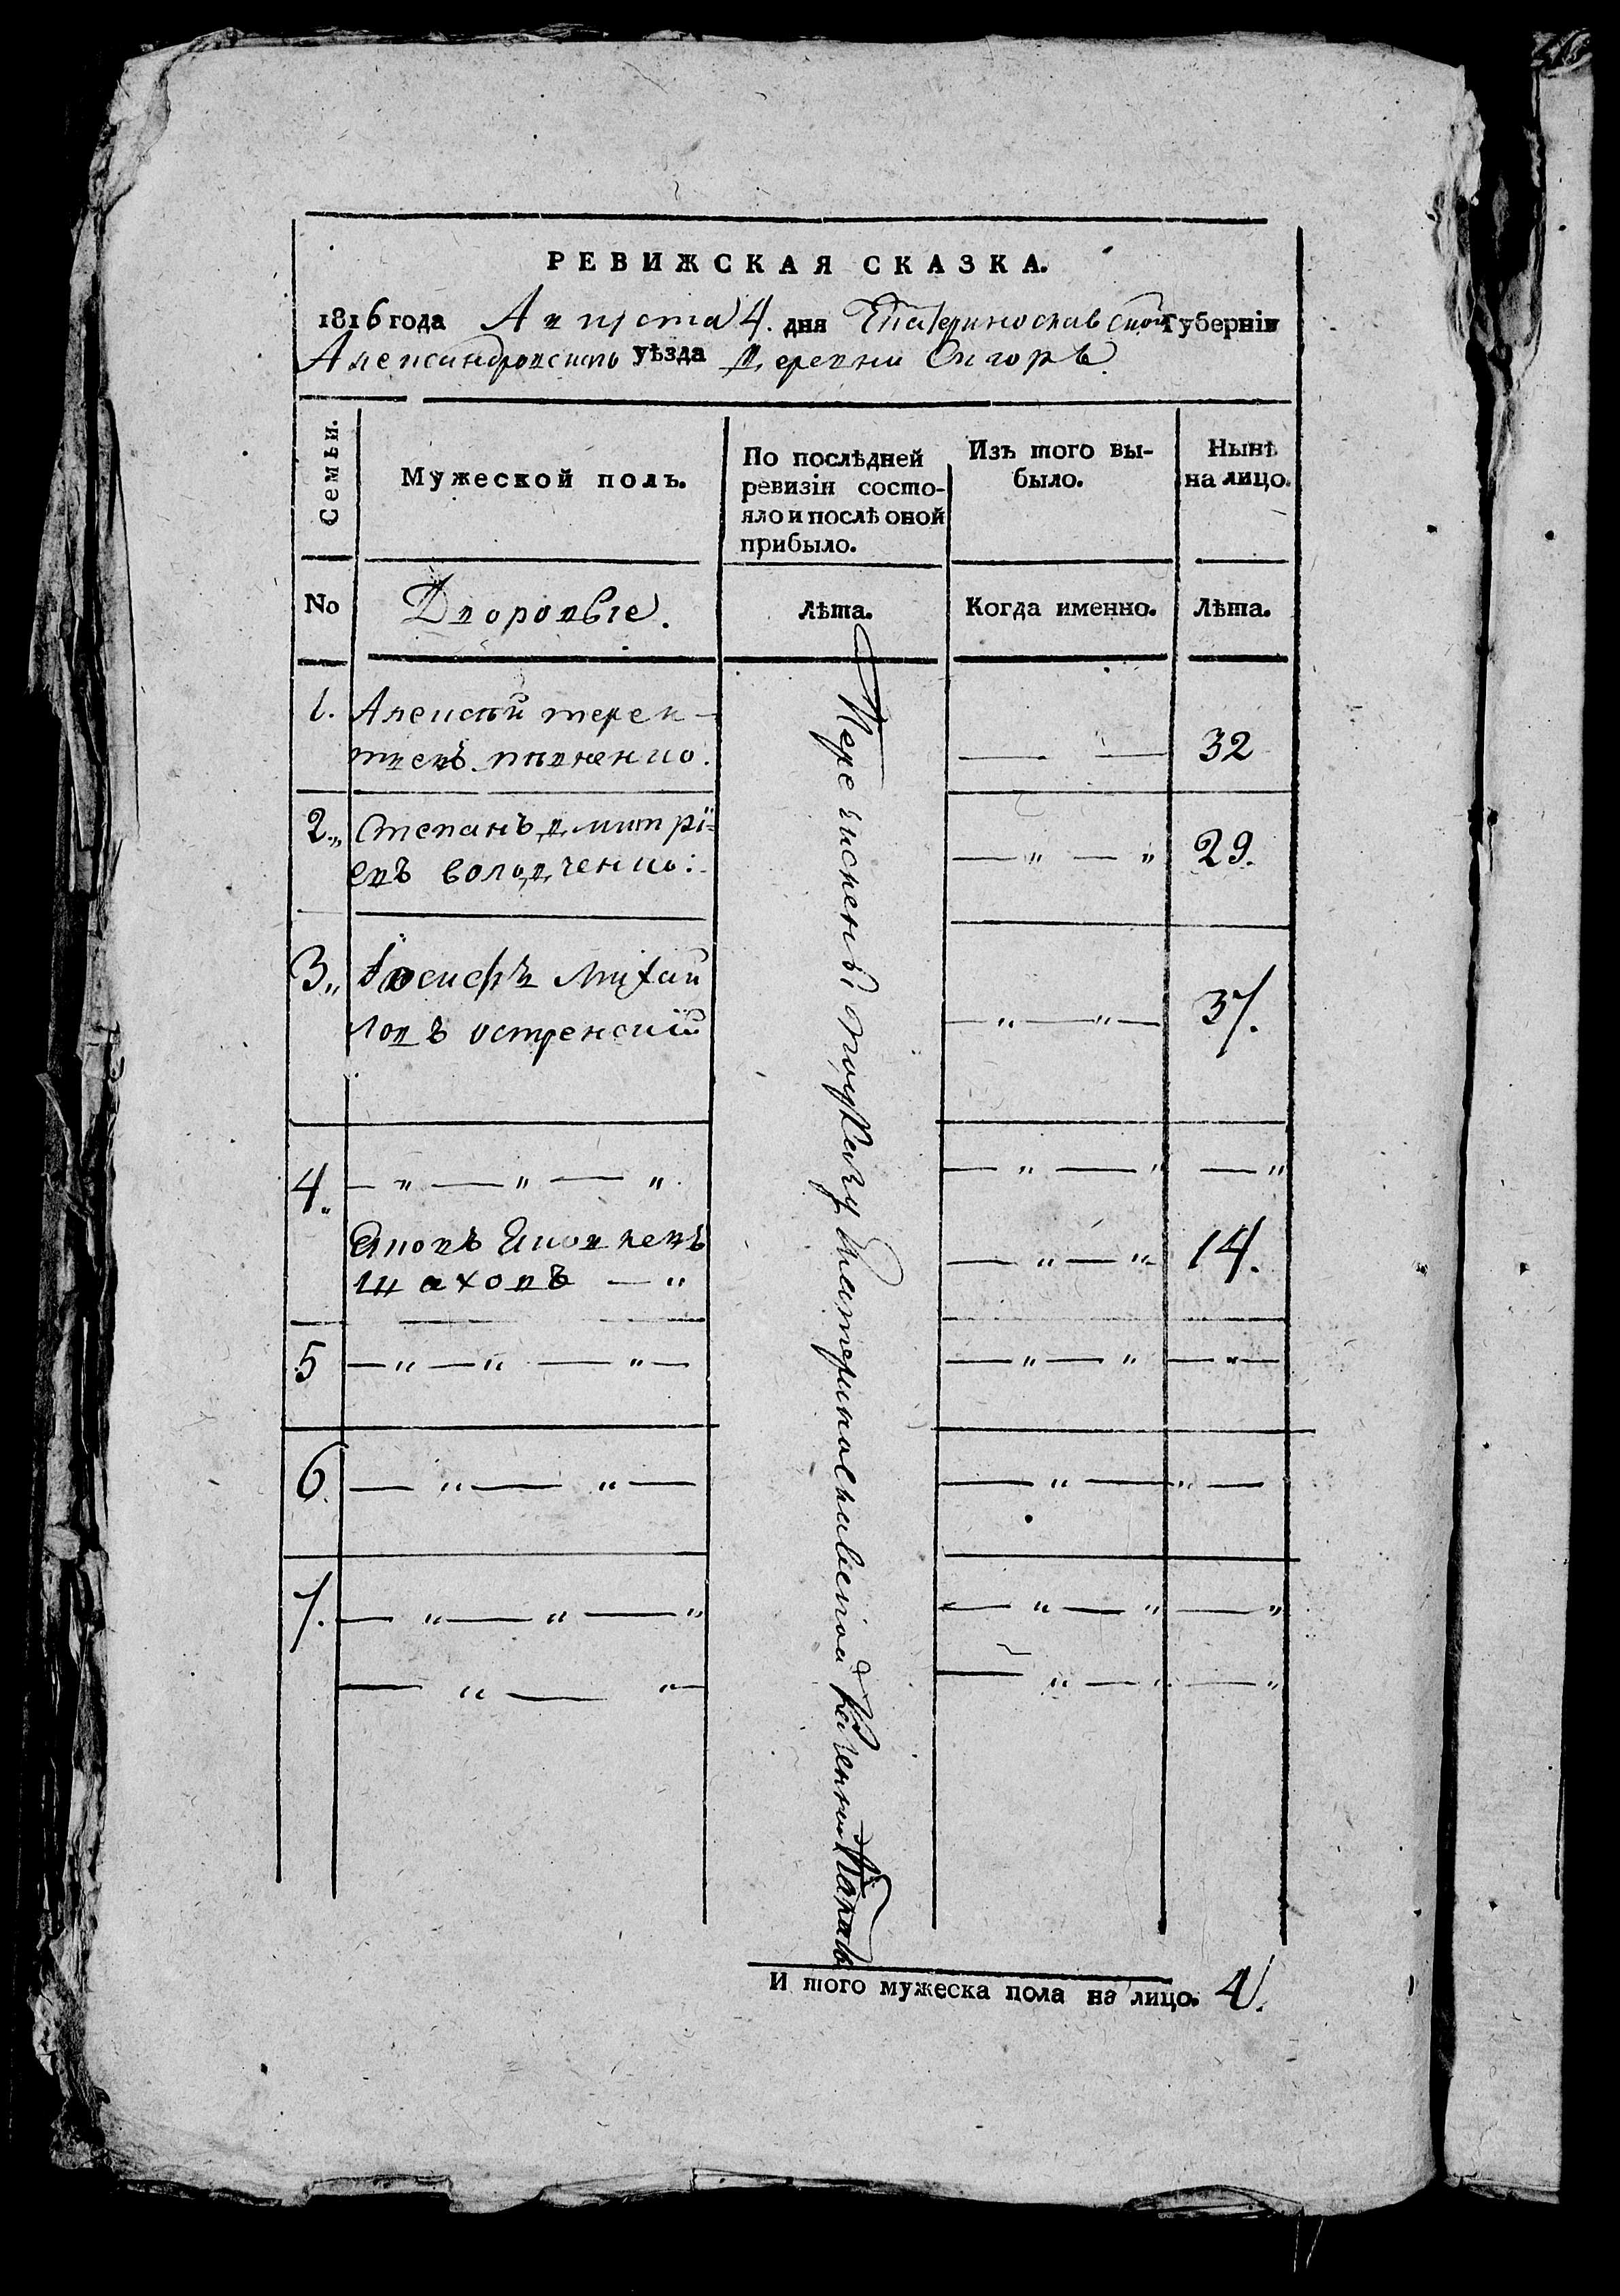 РЕВИЖСКАЯ СКАЗКА.
1816 года Августа 4. дня Екатеринославской губернiи
Александровского уѣзда деревни
Семьи.
Мужеской полъ.
По послѣдней
ревизiи состо-
яло и послѣ оной
прибыло.
Изъ того вы-
было.
Нынѣ
на лицо.
No
Дворовые.
Лѣта.
Когда именно.
Лѣта.
1. Алексѣй терен-
тиевъ 32
2. Степанъ дмитрi=
евъ володченко: 29.
3. Iосифъ Михай
ловъ остренскiй 37.
4.
Яковъ Яковлевъ
шаховъ 14.
5
6.
7.
Перечислены Екатеринославской Казенной
И того мужеска пола на лицо. 4.